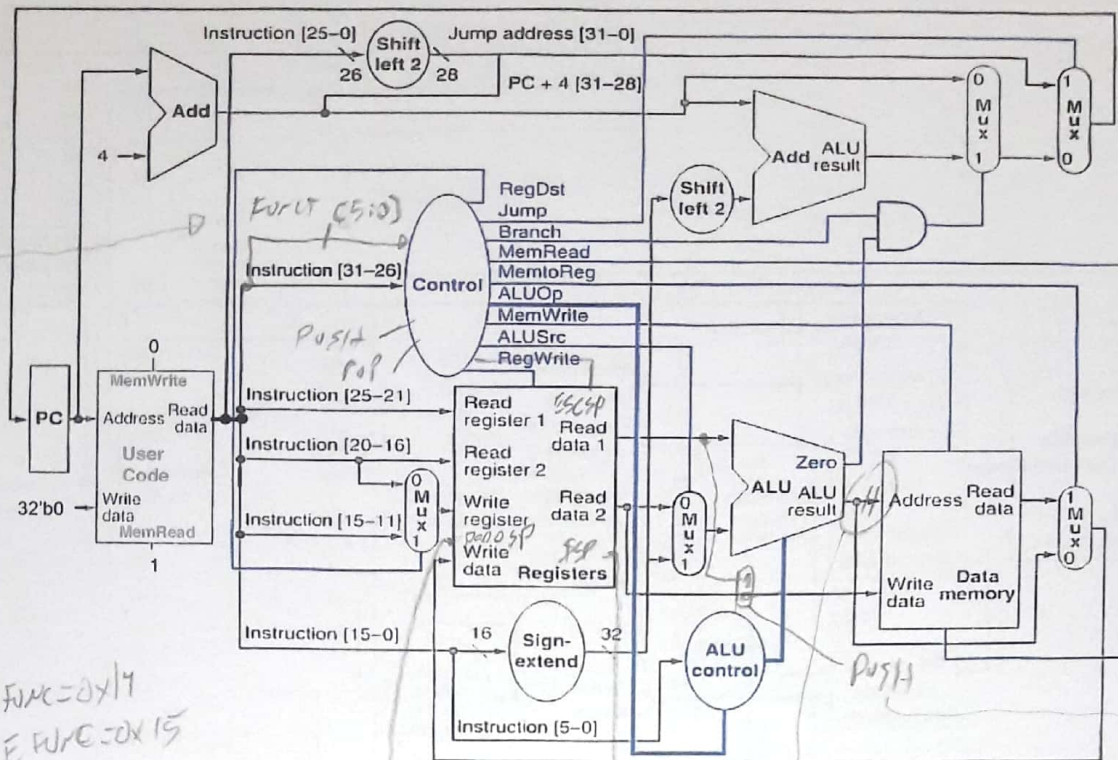 Instruction [25–0]
Shift left 2
Jump address [31–0]
26
28
PC + 4 [31–28]
Add
4
0
Mux
1
1
Mux
0
Add ALU result
Shift left 2
RegDst
Jump
Branch
MemRead
MemtoReg
ALUOp
MemWrite
ALUSrc
RegWrite
Control
Funct [5:0]
Instruction [31–26]
PUSH
POP
0
MemWrite
PC
Address
Read data
User Code
32'b0
Write data
MemRead
1
Instruction [25–21]
Instruction [20–16]
Instruction [15–11]
0
Mux
1
Read register 1
Read data 1
Read register 2
Write register
Read data 2
Write data
Registers
0
Mux
1
Zero
ALU
ALU result
Address
Read data
Write data
Data memory
1
Mux
0
Instruction [15–0]
16
Sign-extend
32
ALU control
PUSH
Instruction [5–0]
FUNC=0x14
FUNC=0x15